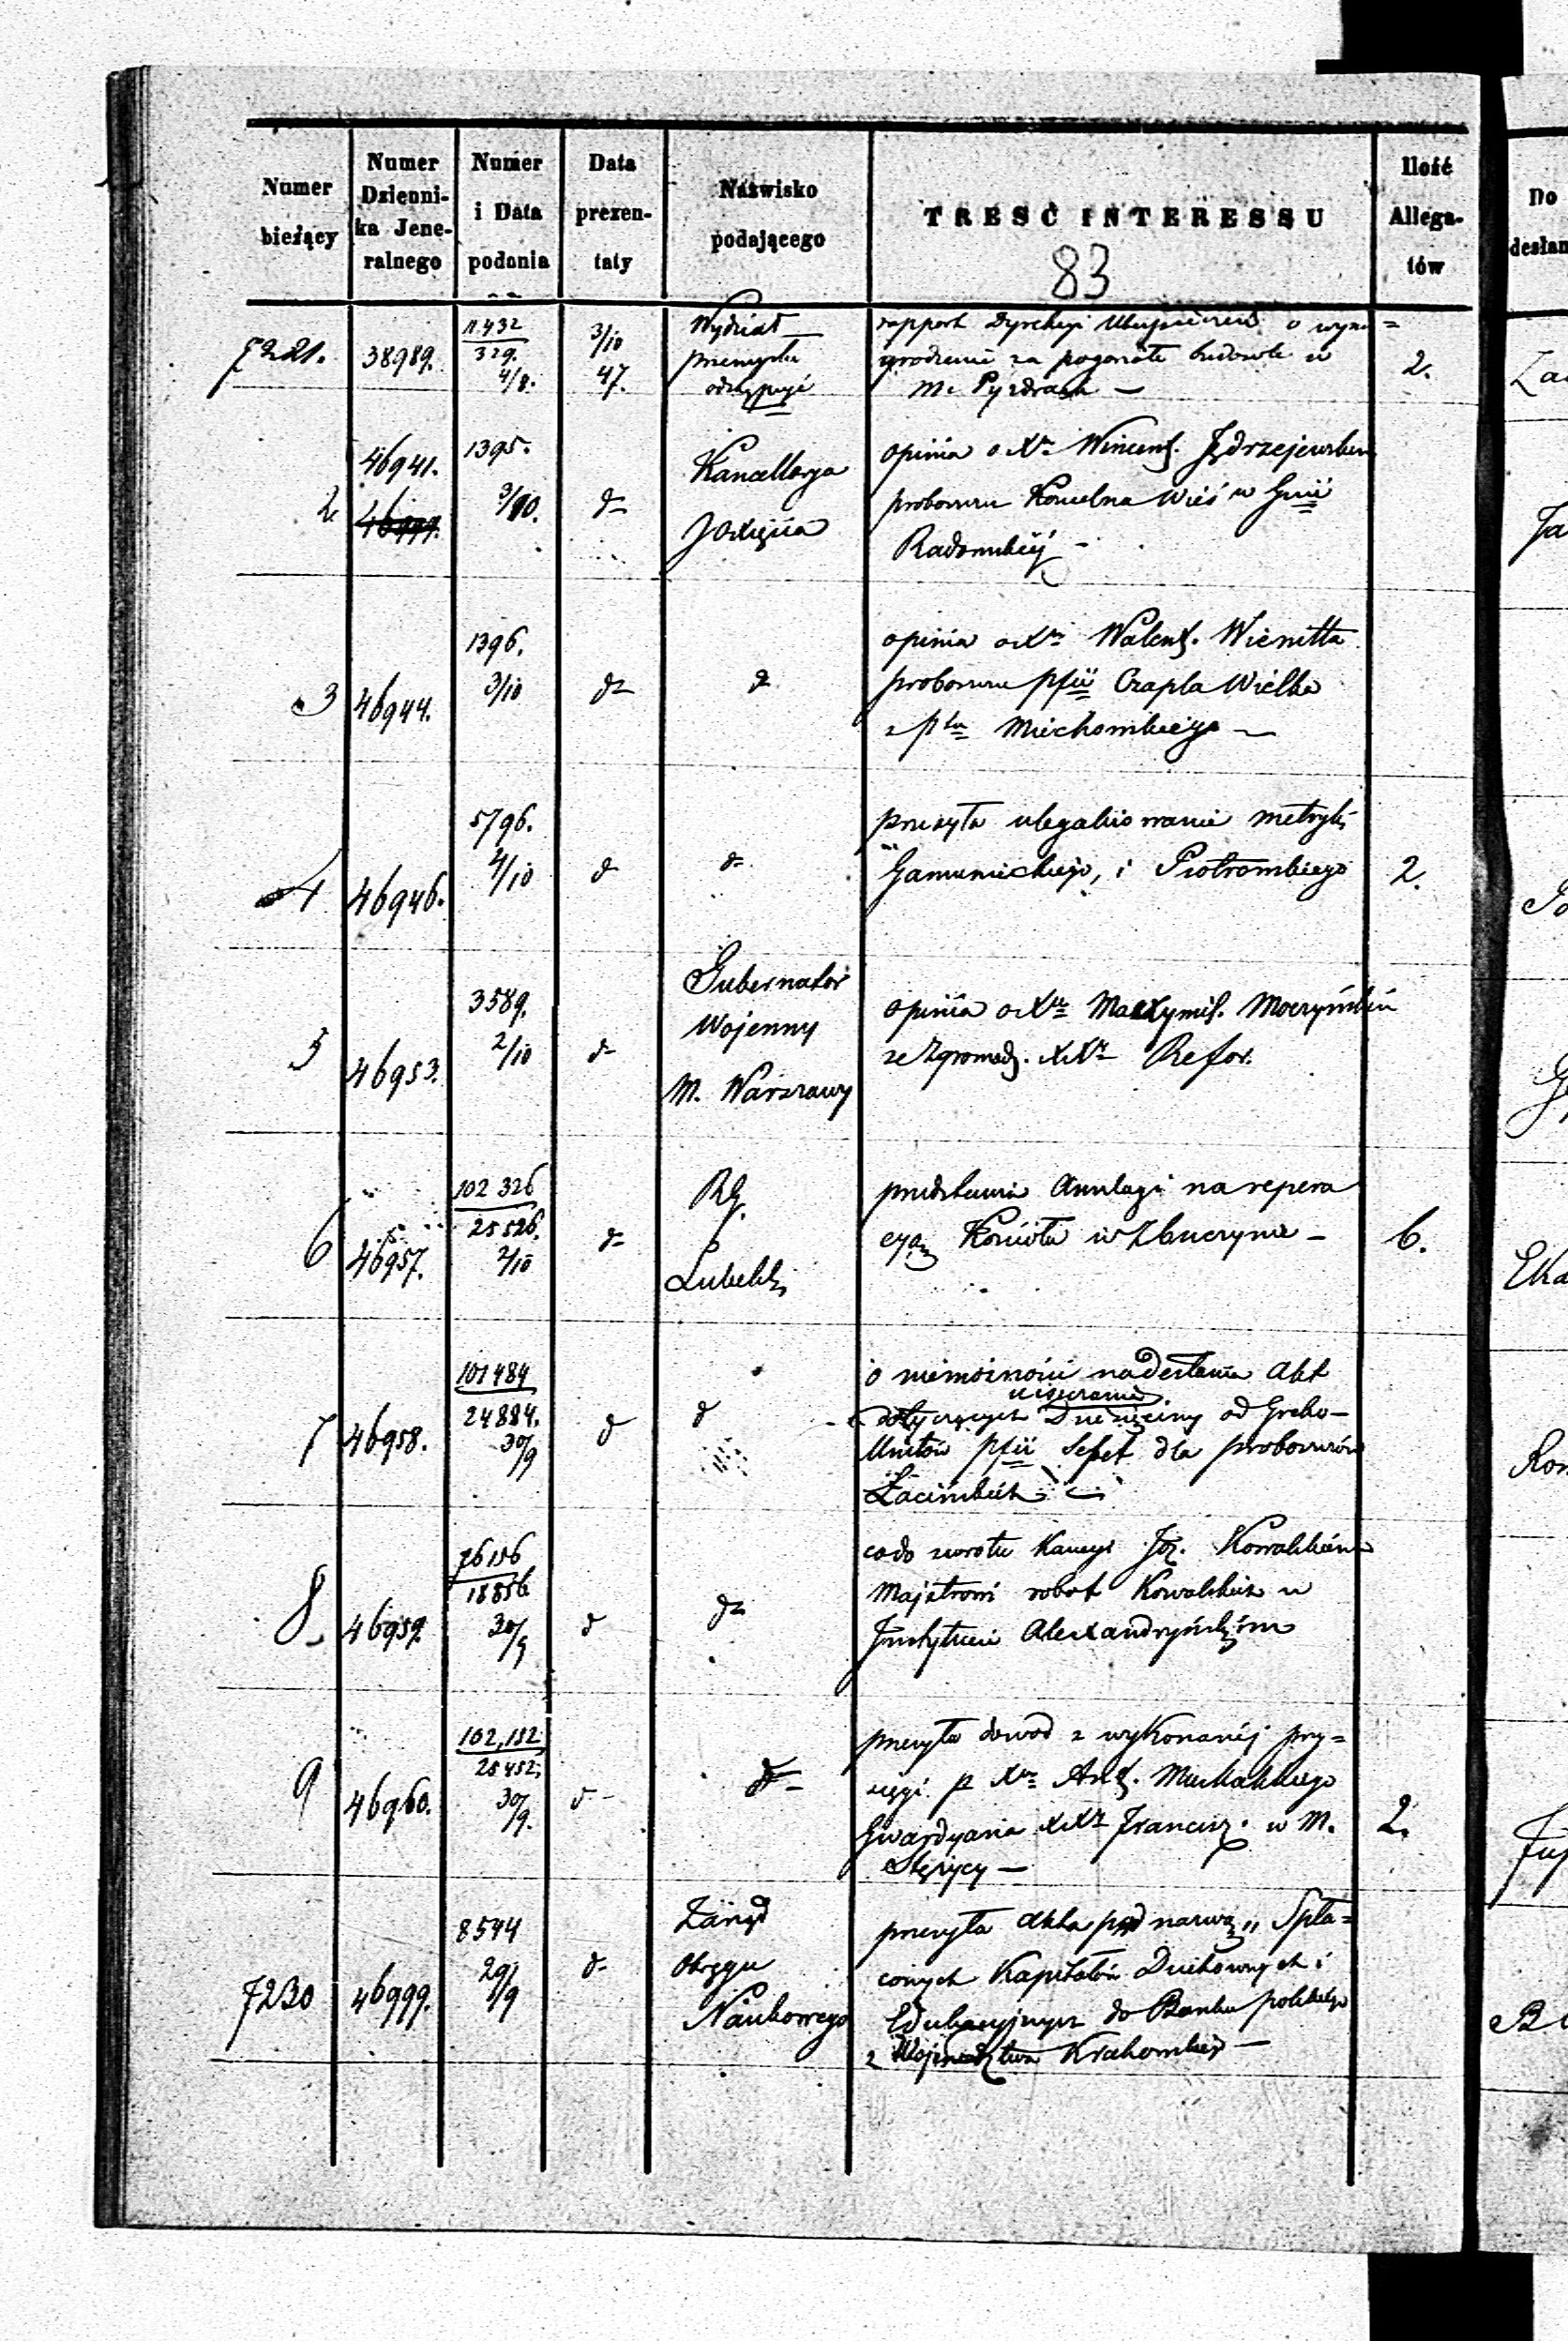 Numer bieżący
Numer Dzienni-
ka Jene-
ralnego
Numer
i Data
podania
Data
prezen-
taty
Nazwisko
podającego
TRESC INTERESSU
83
Ilość
Allega-
tów
Do
desłan
7221. 38989. 11432 / 329. 4/8. 3/10 47.
Wydział
przemysłu
odstępuje
rapport Dyrekcyi Ubezpieczeń o wyna=
grodzenie za pogorzałe budowle w
M. Pyzdrach —
2.
2. 46941. 1395. 3/10. d°
Kancellarya
JOXięcia
opinia o Xu Wincen. Jędrzejewskim
proboszczu Kościelna Wieś w Gnii
Radomskiéj —
3 46944. 1396. 3/10 d° d°
opinia o Xu Walen. Wienitta
proboszczu pfii Czapla Wielka
z ptu Miechowskiego —
4 46946. 5796. 2/10 d° d°
przesyła ulegalizowanie metryk
i Piotrowskiego
2.
5 46953. 3589. 2/10 d°
Gubernator
Wojenny
M. Warszawy
opinia o Xu Maxymil. Moczyńskim
ze Zgromadz. XX Refor.
6 46957. 102326 / 25526. 2/10 d°
RG.
Lubelski
przedstawia Anszlagi na repera
cyą Kościoła w Zbuczynie —
6.
7 46958. 101484 / 24884. 30/9 d° d°
o niemożności nadesłania Akt
uiszczania
dotyczących Dziesięciny od Greko—
Unitów pfii dla proboszczów
Łacińskich —
8 46959. 76156 / 18856 30/9 d° d°
co do zwrotu Kaucyi Józ. Kowalskiemu
Majstrowi robót Kowalskich w
Instytucie Alexandryńskim
9 46960. 102,182 / 25452. 30/9. d° d°
przesyła dowód z wykonanéj przy=
sięgi p Xa Ant. Michalskiego
Gwardyana XX Francisz. w M.
Stężycy —
2.
7230 46999. 8544 29/9 d°
Zarząd
Okręgu
Naukowego
przesyła akta pod nazwą „Spła=
conych Kapitałów Duchownych i
Edukacyjnych do Banku polskiego
z Województwa Krakowskiego —